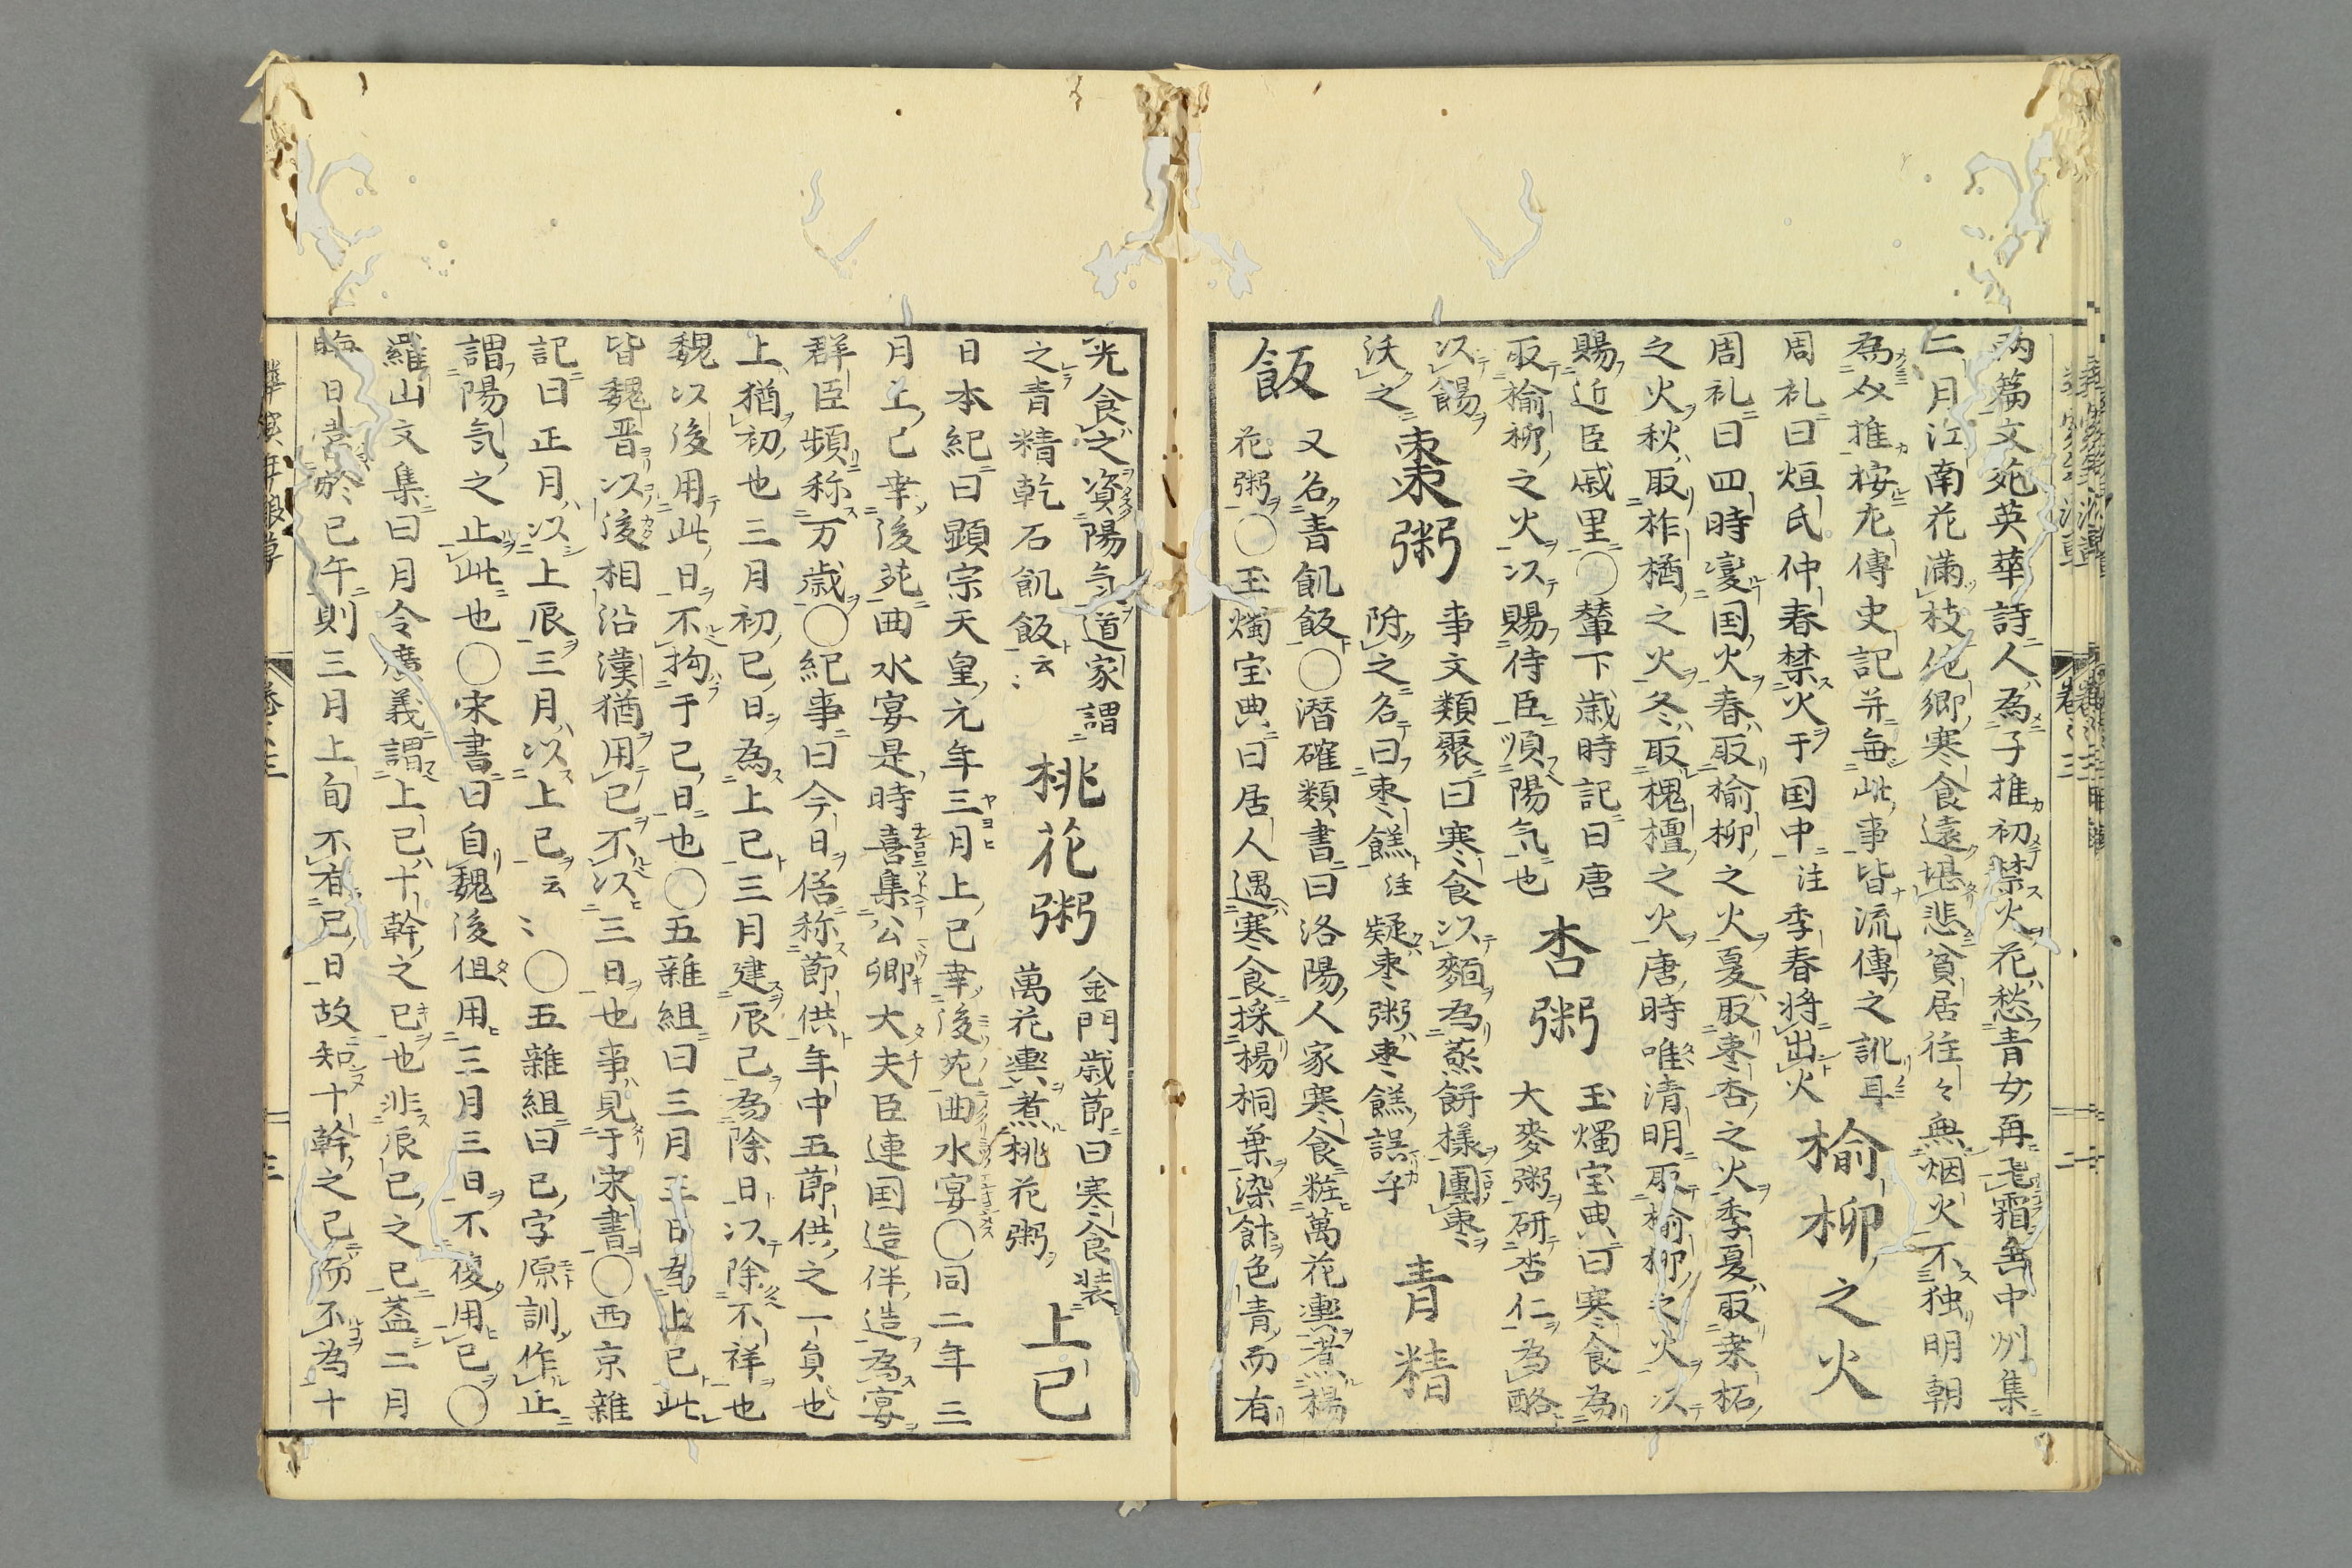 両篇文苑英華詩人為子推初禁火花愁青女再飛霜舎中州集
二月江南花満枝他郷寒食遠堪悲貧居往々無烟火不独明朝
為子推按左傳史記并無此事皆流傳之訛耳 榆柳之火
周礼曰烜氏仲春禁火于国中 注 季春将出火
周礼曰四時変国火春取榆柳之火夏取棗杏之火季夏取桑柘
之火秋取柞楢之火冬取槐檀之火唐時唯清明取榆柳之火以
賜近臣戚里〇輦下歳時記曰唐
取榆柳之火以賜侍臣順陽気也
杏粥
玉燭宝典曰寒食為
大麥粥研杏仁為酪
以餳
沃之
棗粥
事文類聚曰寒食以麺為蒸餅様團棗
附之名曰棗餻 注 疑棗粥棗餻誤乎
青精
飯
又名青飢飯〇潛確類書曰洛陽人家寒食粧萬花輿煮楊
花粥〇玉燭宝典曰居人遇寒食採楊桐葉染飰色青而有
光食之資陽気道家謂
之青精乾石飢飯云〻
桃花粥
金門歳節曰寒食装
萬花輿煮桃花粥
上巳
日本紀曰顕宗天皇元年三月上巳幸後苑曲水宴〇同二年三
月上巳幸後苑曲水宴是時喜集公卿大夫臣連国造伴造為宴
群臣頻称万歳〇紀事曰今日俗称節供年中五節供之一員也
上猶初也三月初巳日為上巳三月建辰己為除日以除不祥也
魏以後用此日不拘于巳日也〇五雜組曰三月三日為上巳此
皆魏晋以後相沿漢猶用巳不以三日也事見于宋書〇西京雜
記曰正月以上辰三月以上巳云〻〇五雜組曰巳字原訓作止
謂陽気之止此也〇宋書曰自魏後但用三月三日不復用巳〇
羅山文集曰月令廣義謂上己十幹之己也非辰巳之巳蓋二月
晦日当於巳午則三月上旬不有巳日故知十幹之己而不為十
巻之三
三